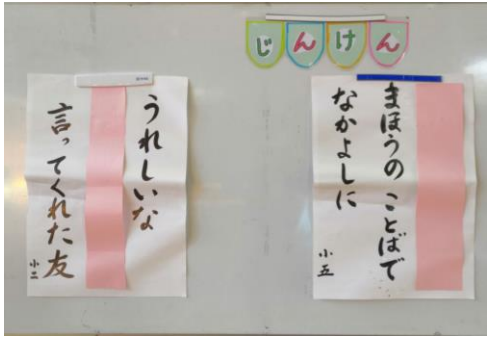 じんけん
まほうの ことばで
なかよしに
小五
うれしいな
言ってくれた友
小二